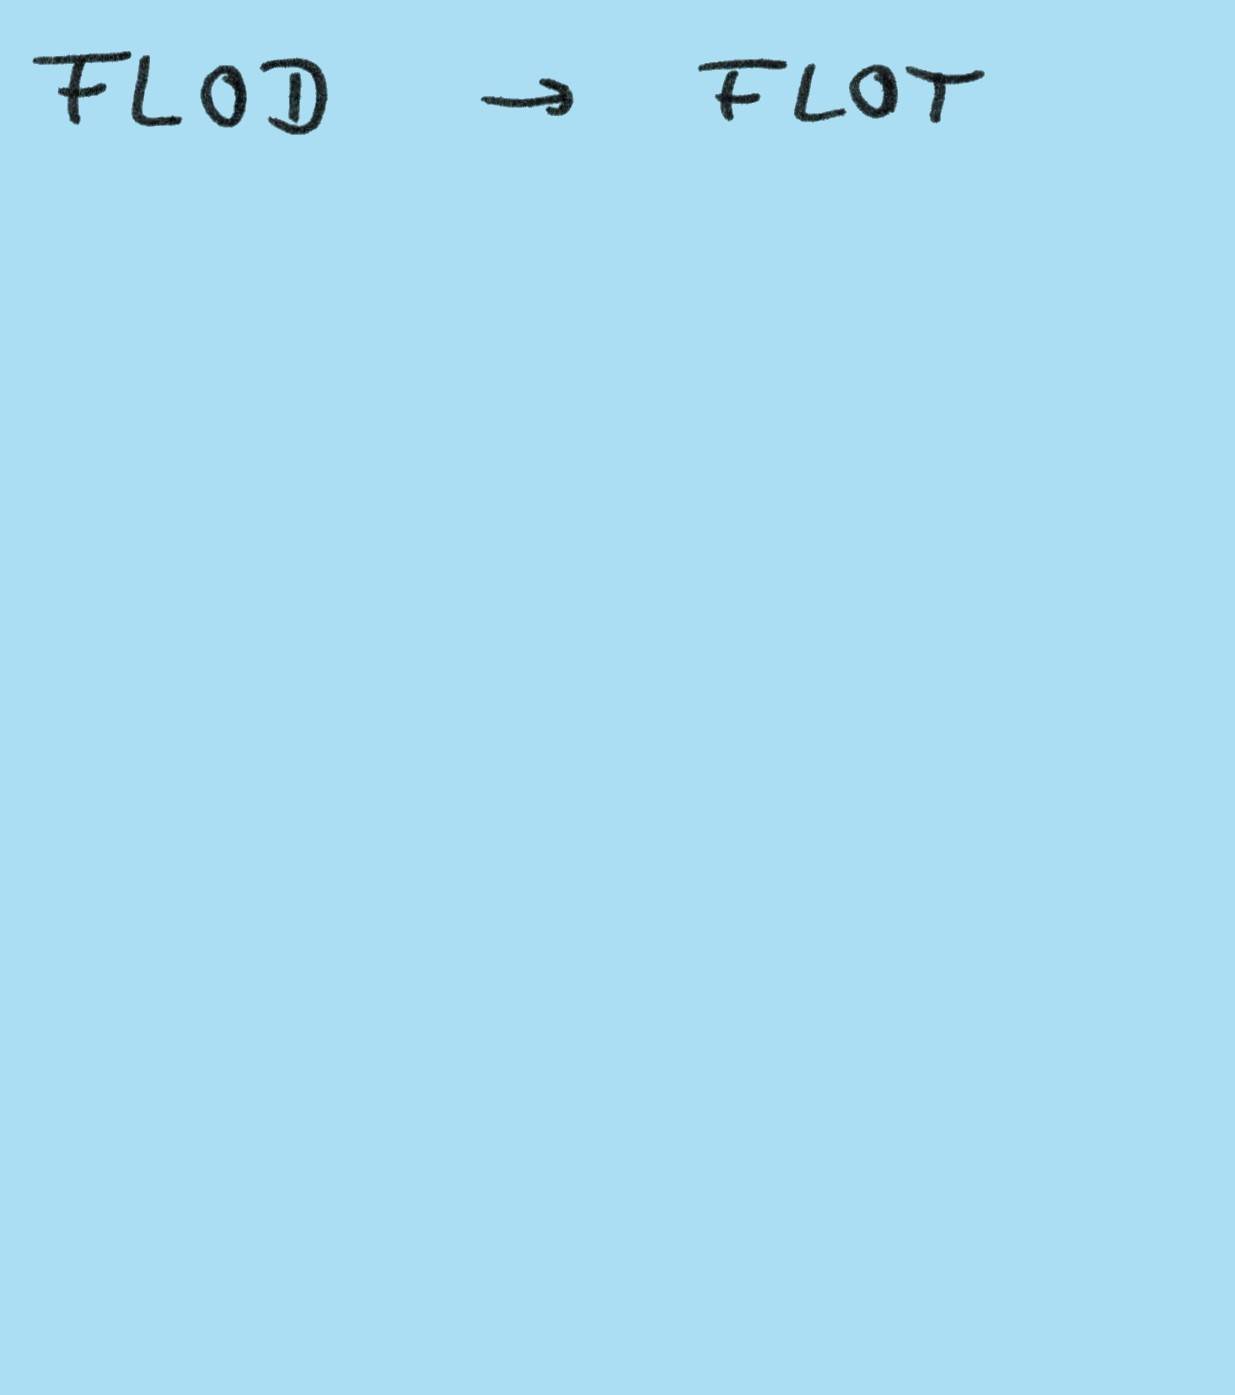 FLOD → FLOT